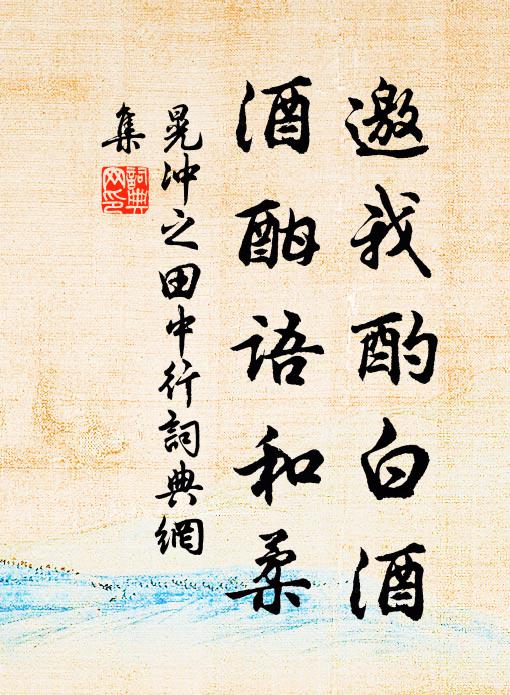 邀我酌白酒
酒酣语和柔
晁冲之田中行詞典網
集
詞典网印